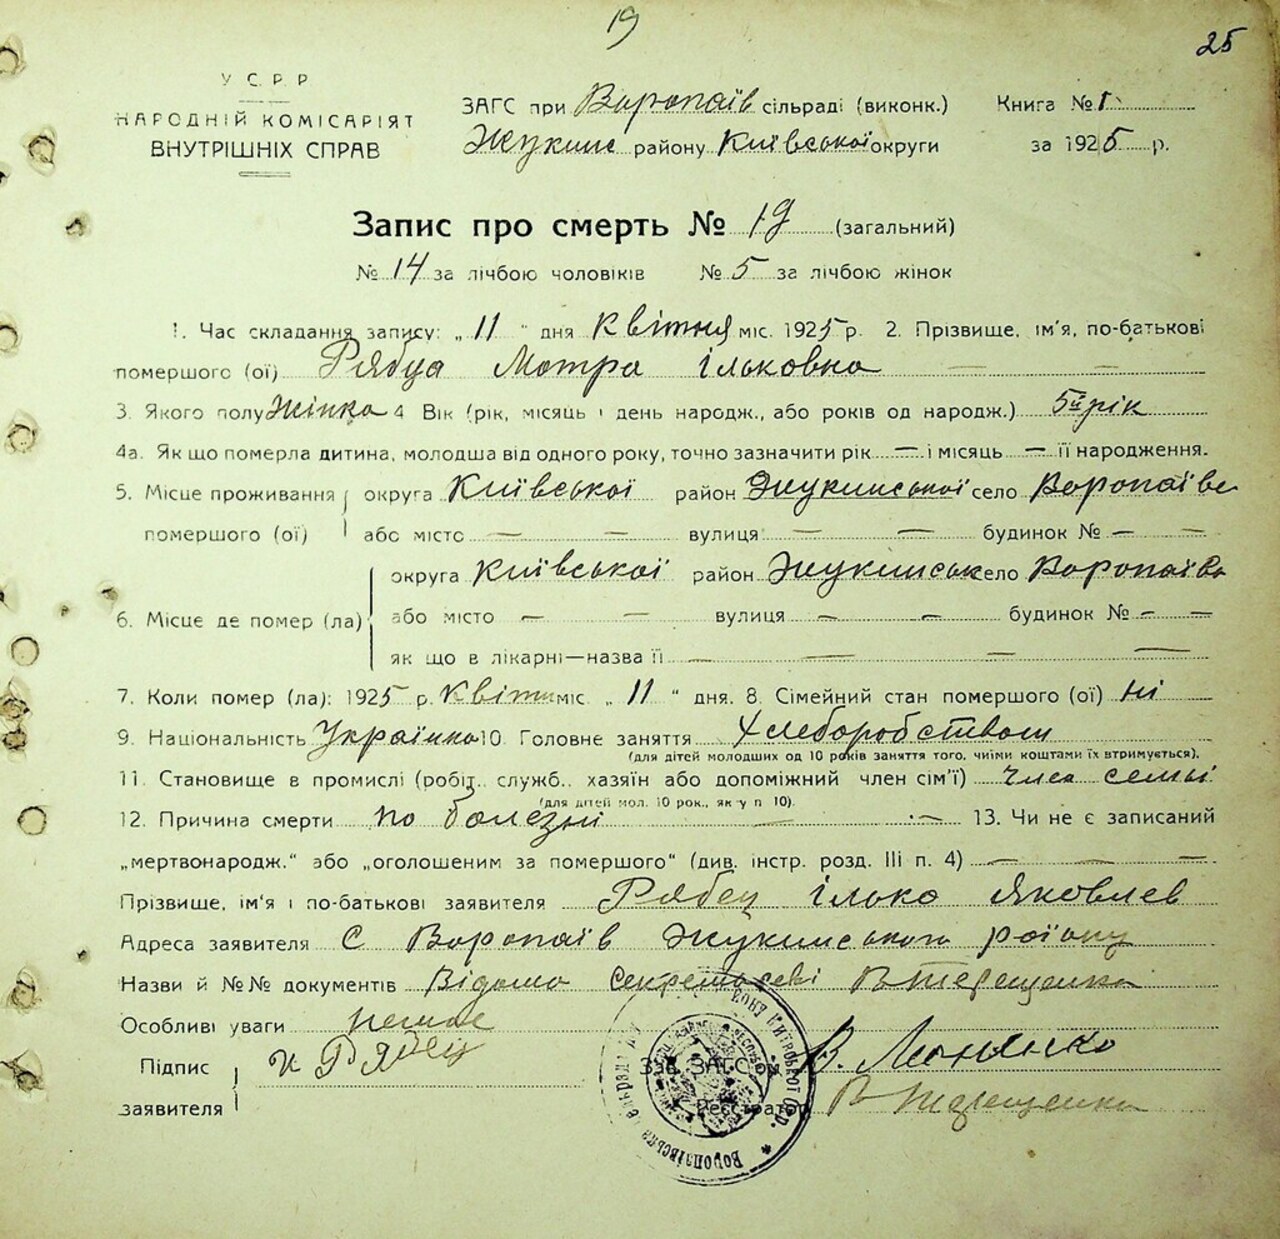 19
25
У.С.Р.Р
НАРОДНІЙ КОМІСАРІЯТ
ВНУТРІШНІХ СПРАВ
ЗАГС при Воропаїв сільраді (виконк.)
Жукинс району Київської округи
Книга № 1
за 1925 р.
Запис про смерть № 19 (загальний)
№ 14 за лічбою чоловіків № 5 за лічбою жінок
1. Час складання запису: „ 11 " дня Квітня міс. 1925 р. 2. Прізвище, ім'я, по-батькові
помершого (ої) Рябца Мотра ільковна — —
3. Якого полу Жінка 4 Вік (рік, місяць і день народж., або років од народж.) 5й рік
4а. Як що померла дитина, молодша від одного року, точно зазначити рік — і місяць — її народження.
5. Місце проживання округа Київської район Жукинської село Воропаїве
помершого (ої) або місто — — вулиця — — будинок № — —
округа Київської район Жукинськ село Воропаїва
6. Місце де помер (ла) або місто — — вулиця — — будинок № — —
як що в лікарні—назва її — — — —
7. Коли помер (ла): 1925 р. Квітн міс. „ 11 " дня. 8. Сімейний стан помершого (ої) ні
9. Національність Українка 10. Головне заняття Хлеборобством
(для дітей молодших од 10 років заняття того, чиїми коштами їх втримується).
11. Становище в промислі (робіт., служб., хазяїн або допоміжний член сім'ї) член семьі
(для дітей мол. 10 рок., як у п 10).
12. Причина смерти по болезні — — 13. Чи не є записаний
„мертвонародж." або „оголошеним за помершого" (див. інстр. розд. III п. 4) — — —
Прізвище, ім'я і по-батькові заявителя Рябец ілько Яковлев
Адреса заявителя С Воропаїв Жукинського роїону
Назви й №№ документів Відомо Секретареві В Терещенко
Особливі уваги немає
Підпис
заявителя
И Рябец
Зав. ЗАГС'од В.
Реєстратор В Терещенко